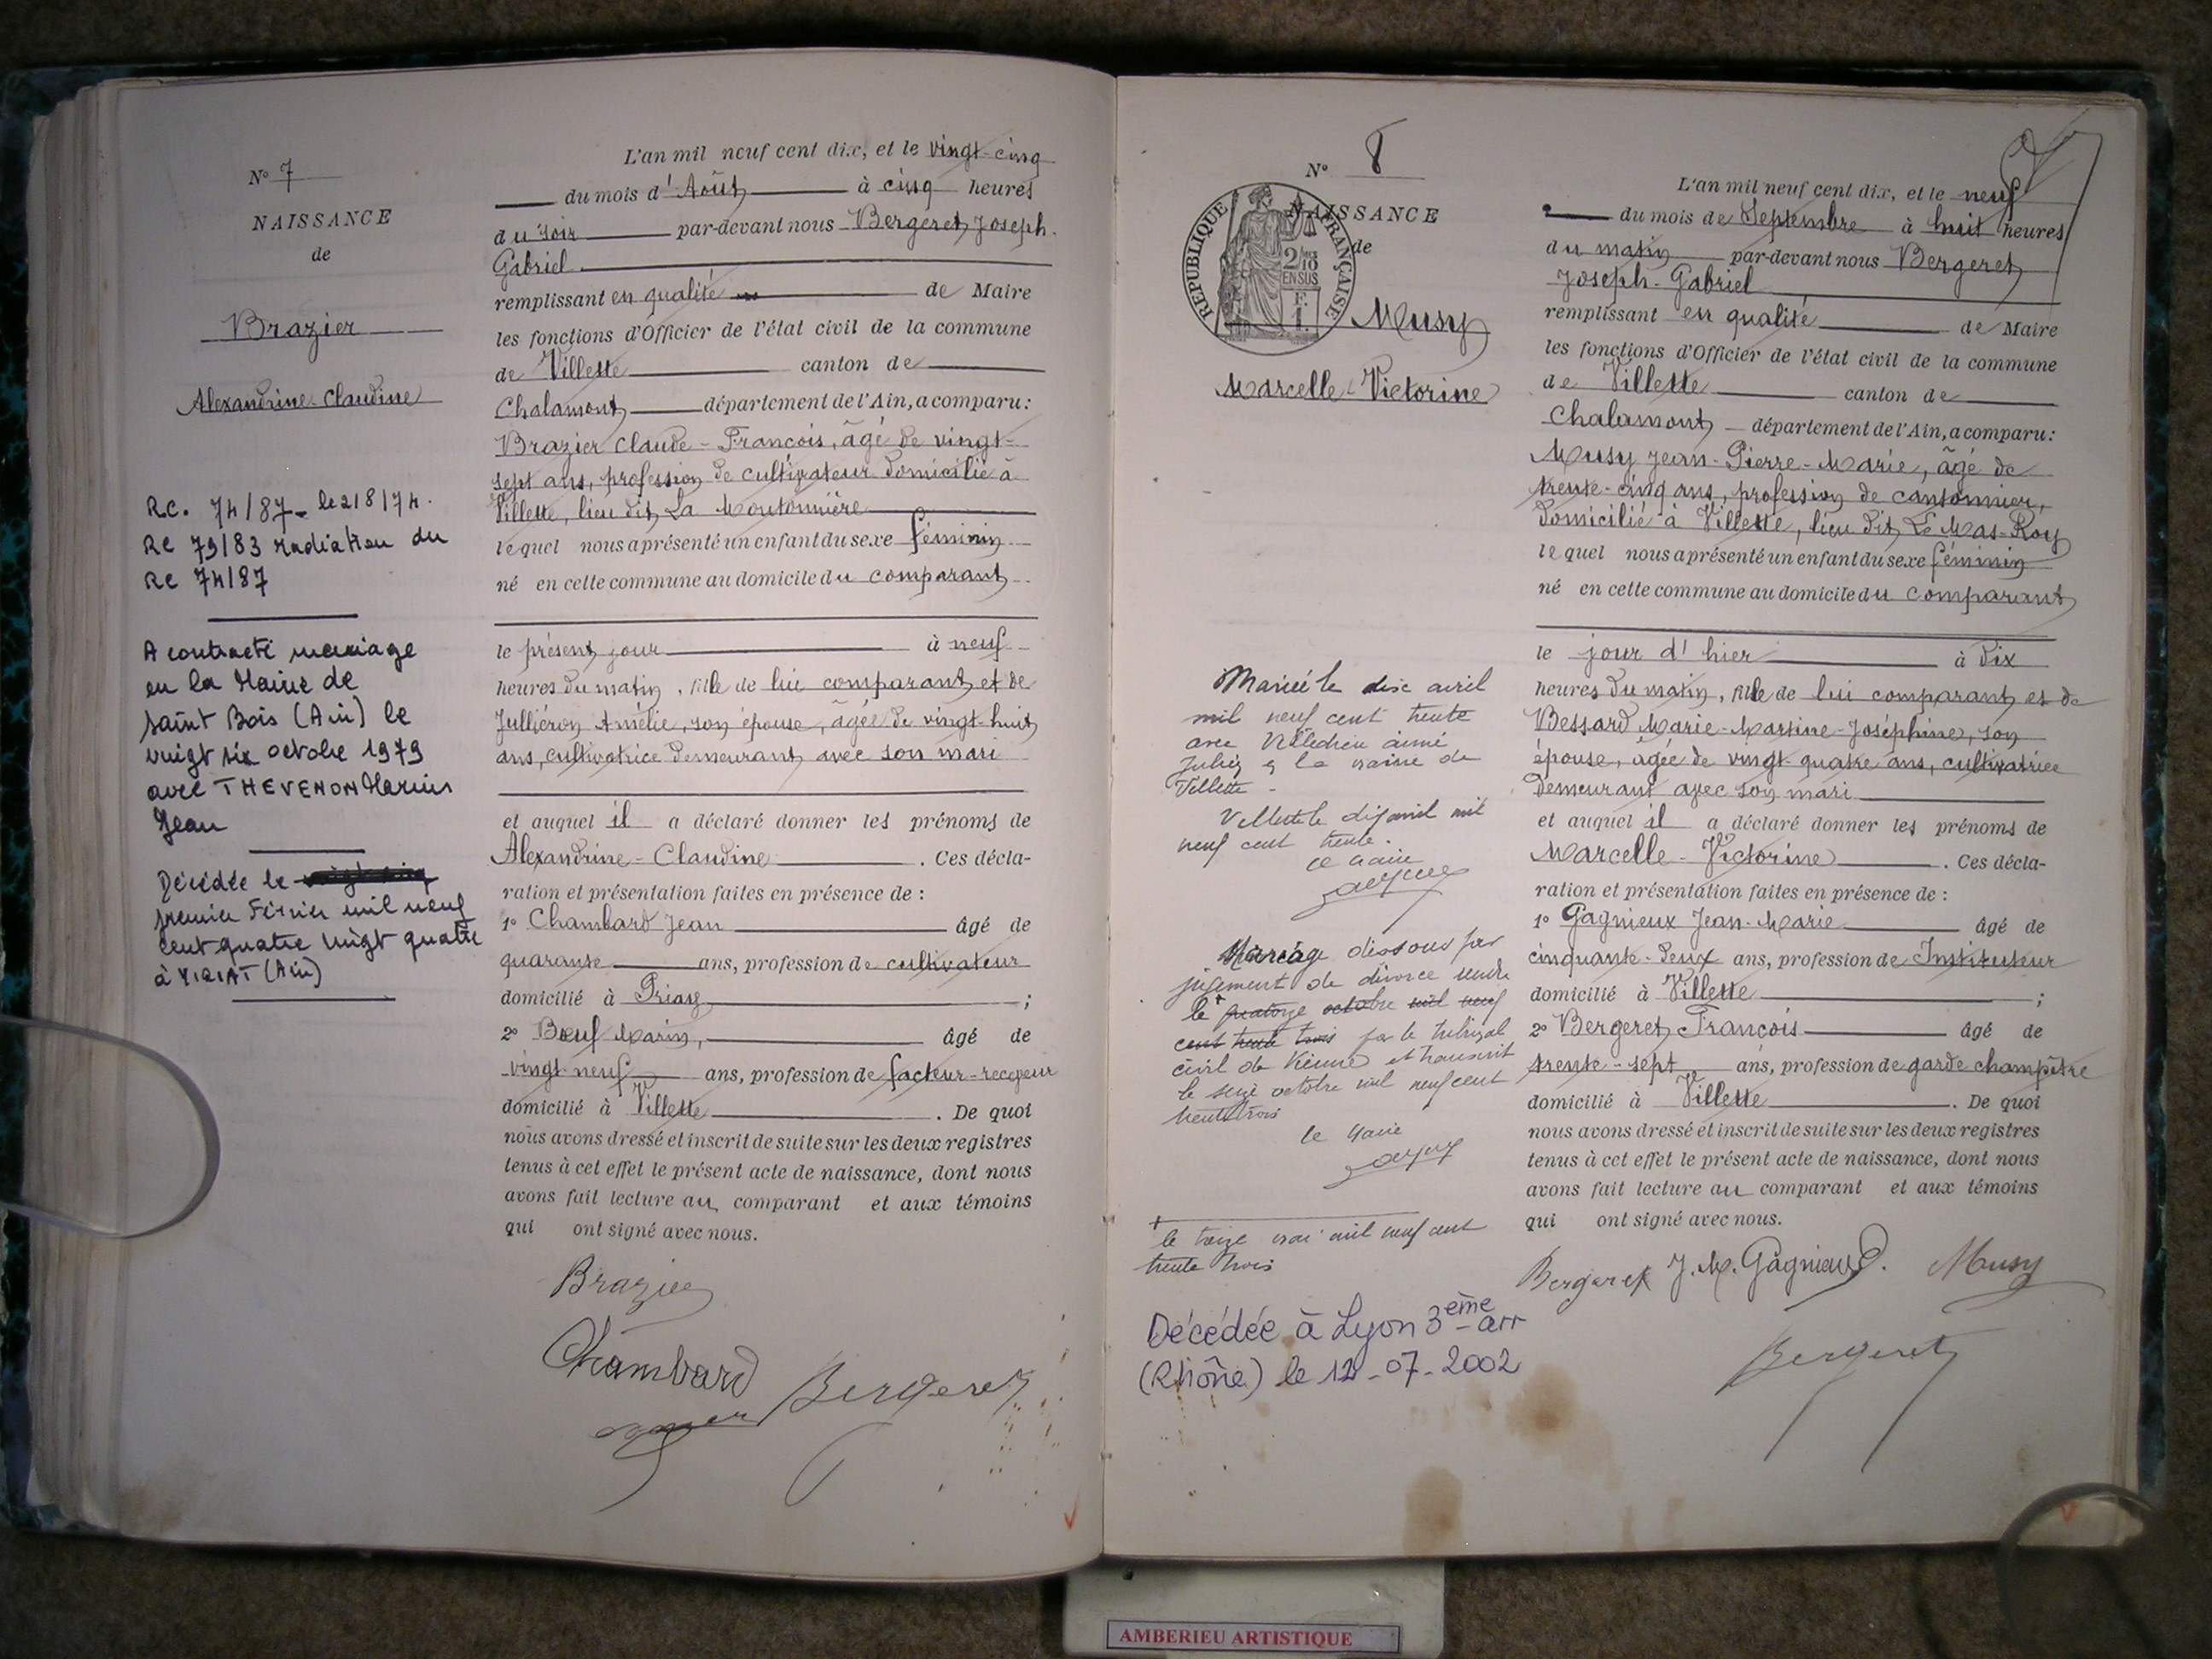 N° 7
NAISSANCE
de
Brazier
Alexandrine-Claudine
RC. 74/87 - le 2/8/74.
RC 79/83 radiation du
RC 74/87
A contracté mariage
en la Mairie de
saint Bois (Ain) le
vingt six octobre 1979
avec THEVENON Marius
Jean
Décédée le
premier Février mil neuf
cent quatre vingt quatre
à VIRIAT (Ain)
L'an mil neuf cent dix, et le vingt-cinq
du mois d'Août à cinq heures
du soir par-devant nous Bergeret, Joseph-
Gabriel
remplissant en qualité de Maire
les fonctions d'Officier de l'état civil de la commune
de Villette canton de
Chalamont département de l'Ain, a comparu:
Brazier Claude-François, âgé de vingt-
sept ans, profession de cultivateur domicilié à
Villette, lieu dit, La Moutonnière
lequel nous a présenté un enfant du sexe féminin
né en cette commune au domicile du comparant
le présent jour à neuf
heures du matin, fille de lui comparant et de
Julliéron Amélie, son épouse, âgée de vingt-huit
ans, cultivatrice demeurant avec son mari
et auquel il a déclaré donner les prénoms de
Alexandrine-Claudine. Ces décla-
ration et présentation faites en présence de :
1° Chambard Jean âgé de
quarante ans, profession de cultivateur
domicilié à Priay ;
2° Bœuf Marin, âgé de
vingt-neuf ans, profession de facteur-receveur
domicilié à Villette. De quoi
nous avons dressé et inscrit de suite sur les deux registres
tenus à cet effet le présent acte de naissance, dont nous
avons fait lecture au comparant et aux témoins
qui ont signé avec nous.
Brazier
Chambard Bergeret
N° 8
NAISSANCE
de
RÉPUBLIQUE FRANÇAISE
2/10
EN SUS
F.
1.
Musy
Marcelle-Victorine
Marié le dix avril
mil neuf cent trente
avec Villedieu aimé
Julien à la mairie de
Villette -
Villette le dix avril mil
neuf cent trente.
Le maire
Mariage dissous par
jugement de divorce rendu
le + quatorze octobre mil neuf
cent trente trois par le tribunal
civil de Vienne et transcrit
le seize octobre mil neuf cent
trente trois
le Maire
+ le treize mai mil neuf cent
trente trois
Décédée à Lyon 3ème arr
(Rhône) le 12-07-2002
L'an mil neuf cent dix, et le neuf
du mois de Septembre à huit heures
du matin par-devant nous Bergeret
Joseph-Gabriel
remplissant en qualité de Maire
les fonctions d'Officier de l'état civil de la commune
de Villette canton de
Chalamont département de l'Ain, a comparu:
Musy Jean-Pierre-Marie, âgé de
trente-cinq ans, profession de cantonnier,
domicilié à Villette, lieu dit, Le Mas-Roy
lequel nous a présenté un enfant du sexe féminin
né en cette commune au domicile du comparant
le jour d'hier à dix
heures du matin, fille de lui comparant, et de
Bessard Marie-Martine-Joséphine, son
épouse, âgée de vingt-quatre ans, cultivatrice
demeurant avec son mari
et auquel il a déclaré donner les prénoms de
Marcelle-Victorine. Ces décla-
ration et présentation faites en présence de :
1° Gagnieux Jean-Marie âgé de
cinquante-deux ans, profession de Instituteur
domicilié à Villette ;
2° Bergeret, François âgé de
trente-sept ans, profession de garde champêtre
domicilié à Villette. De quoi
nous avons dressé et inscrit de suite sur les deux registres
tenus à cet effet le présent acte de naissance, dont nous
avons fait lecture au comparant et aux témoins
qui ont signé avec nous.
Bergeret J. M. Gagnieux. Musy
Bergeret
AMBERIEU ARTISTIQUE